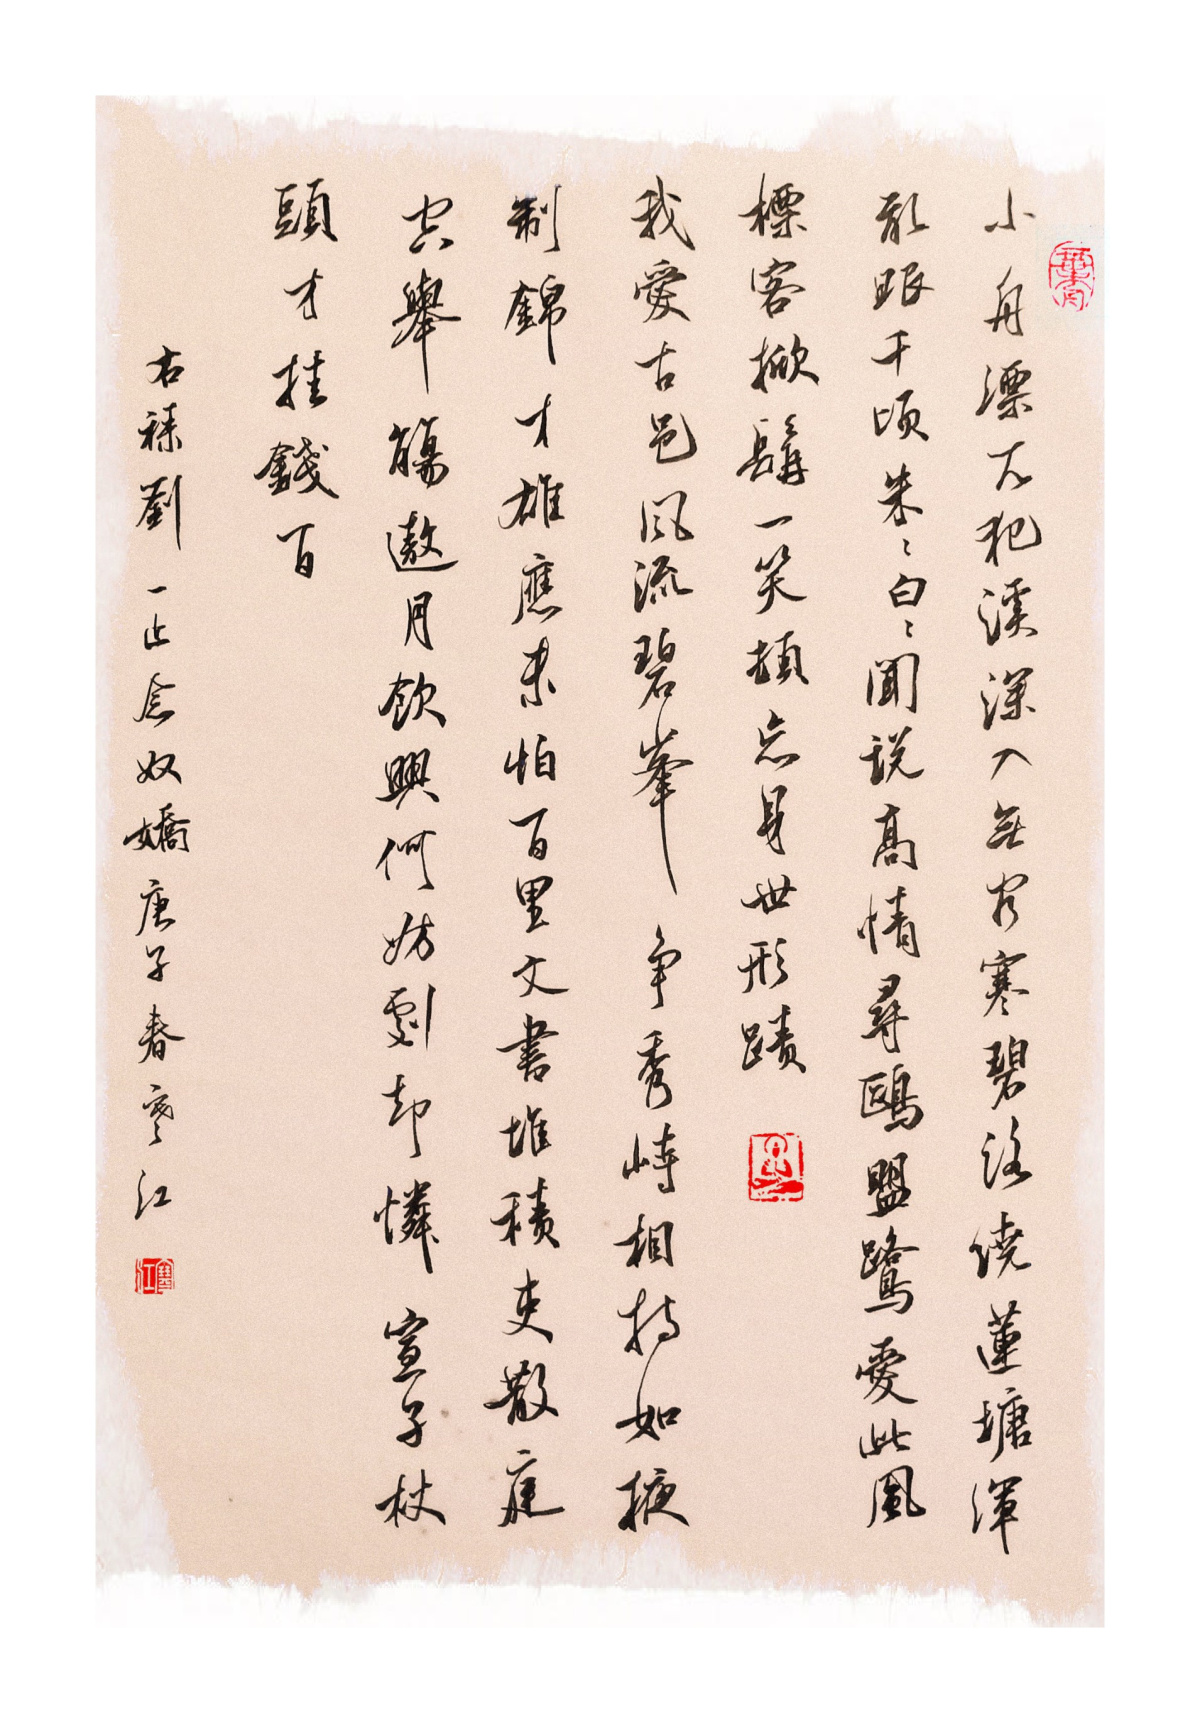 小舟漂兀犯溪深入無窮寒碧路繞蓮塘渾
眼千頃朱〻白〻聞說高情尋鷗盟鷺愛此風
標客掀髯一笑頓忘身世形蹟
我愛古邑風流碧峯爭秀峙相持如掖
制錦才雄應未怕百里文書堆積吏散庭
空舉觴邀月飲興何妨劇却憐宣子杖
頭才挂錢百
右録劉一止念奴嬌庚子春寒江
寒江